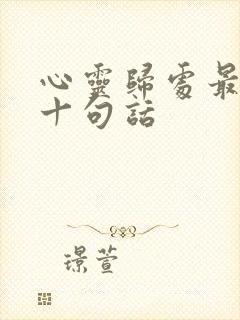 心靈歸處最
十句話
璟萱